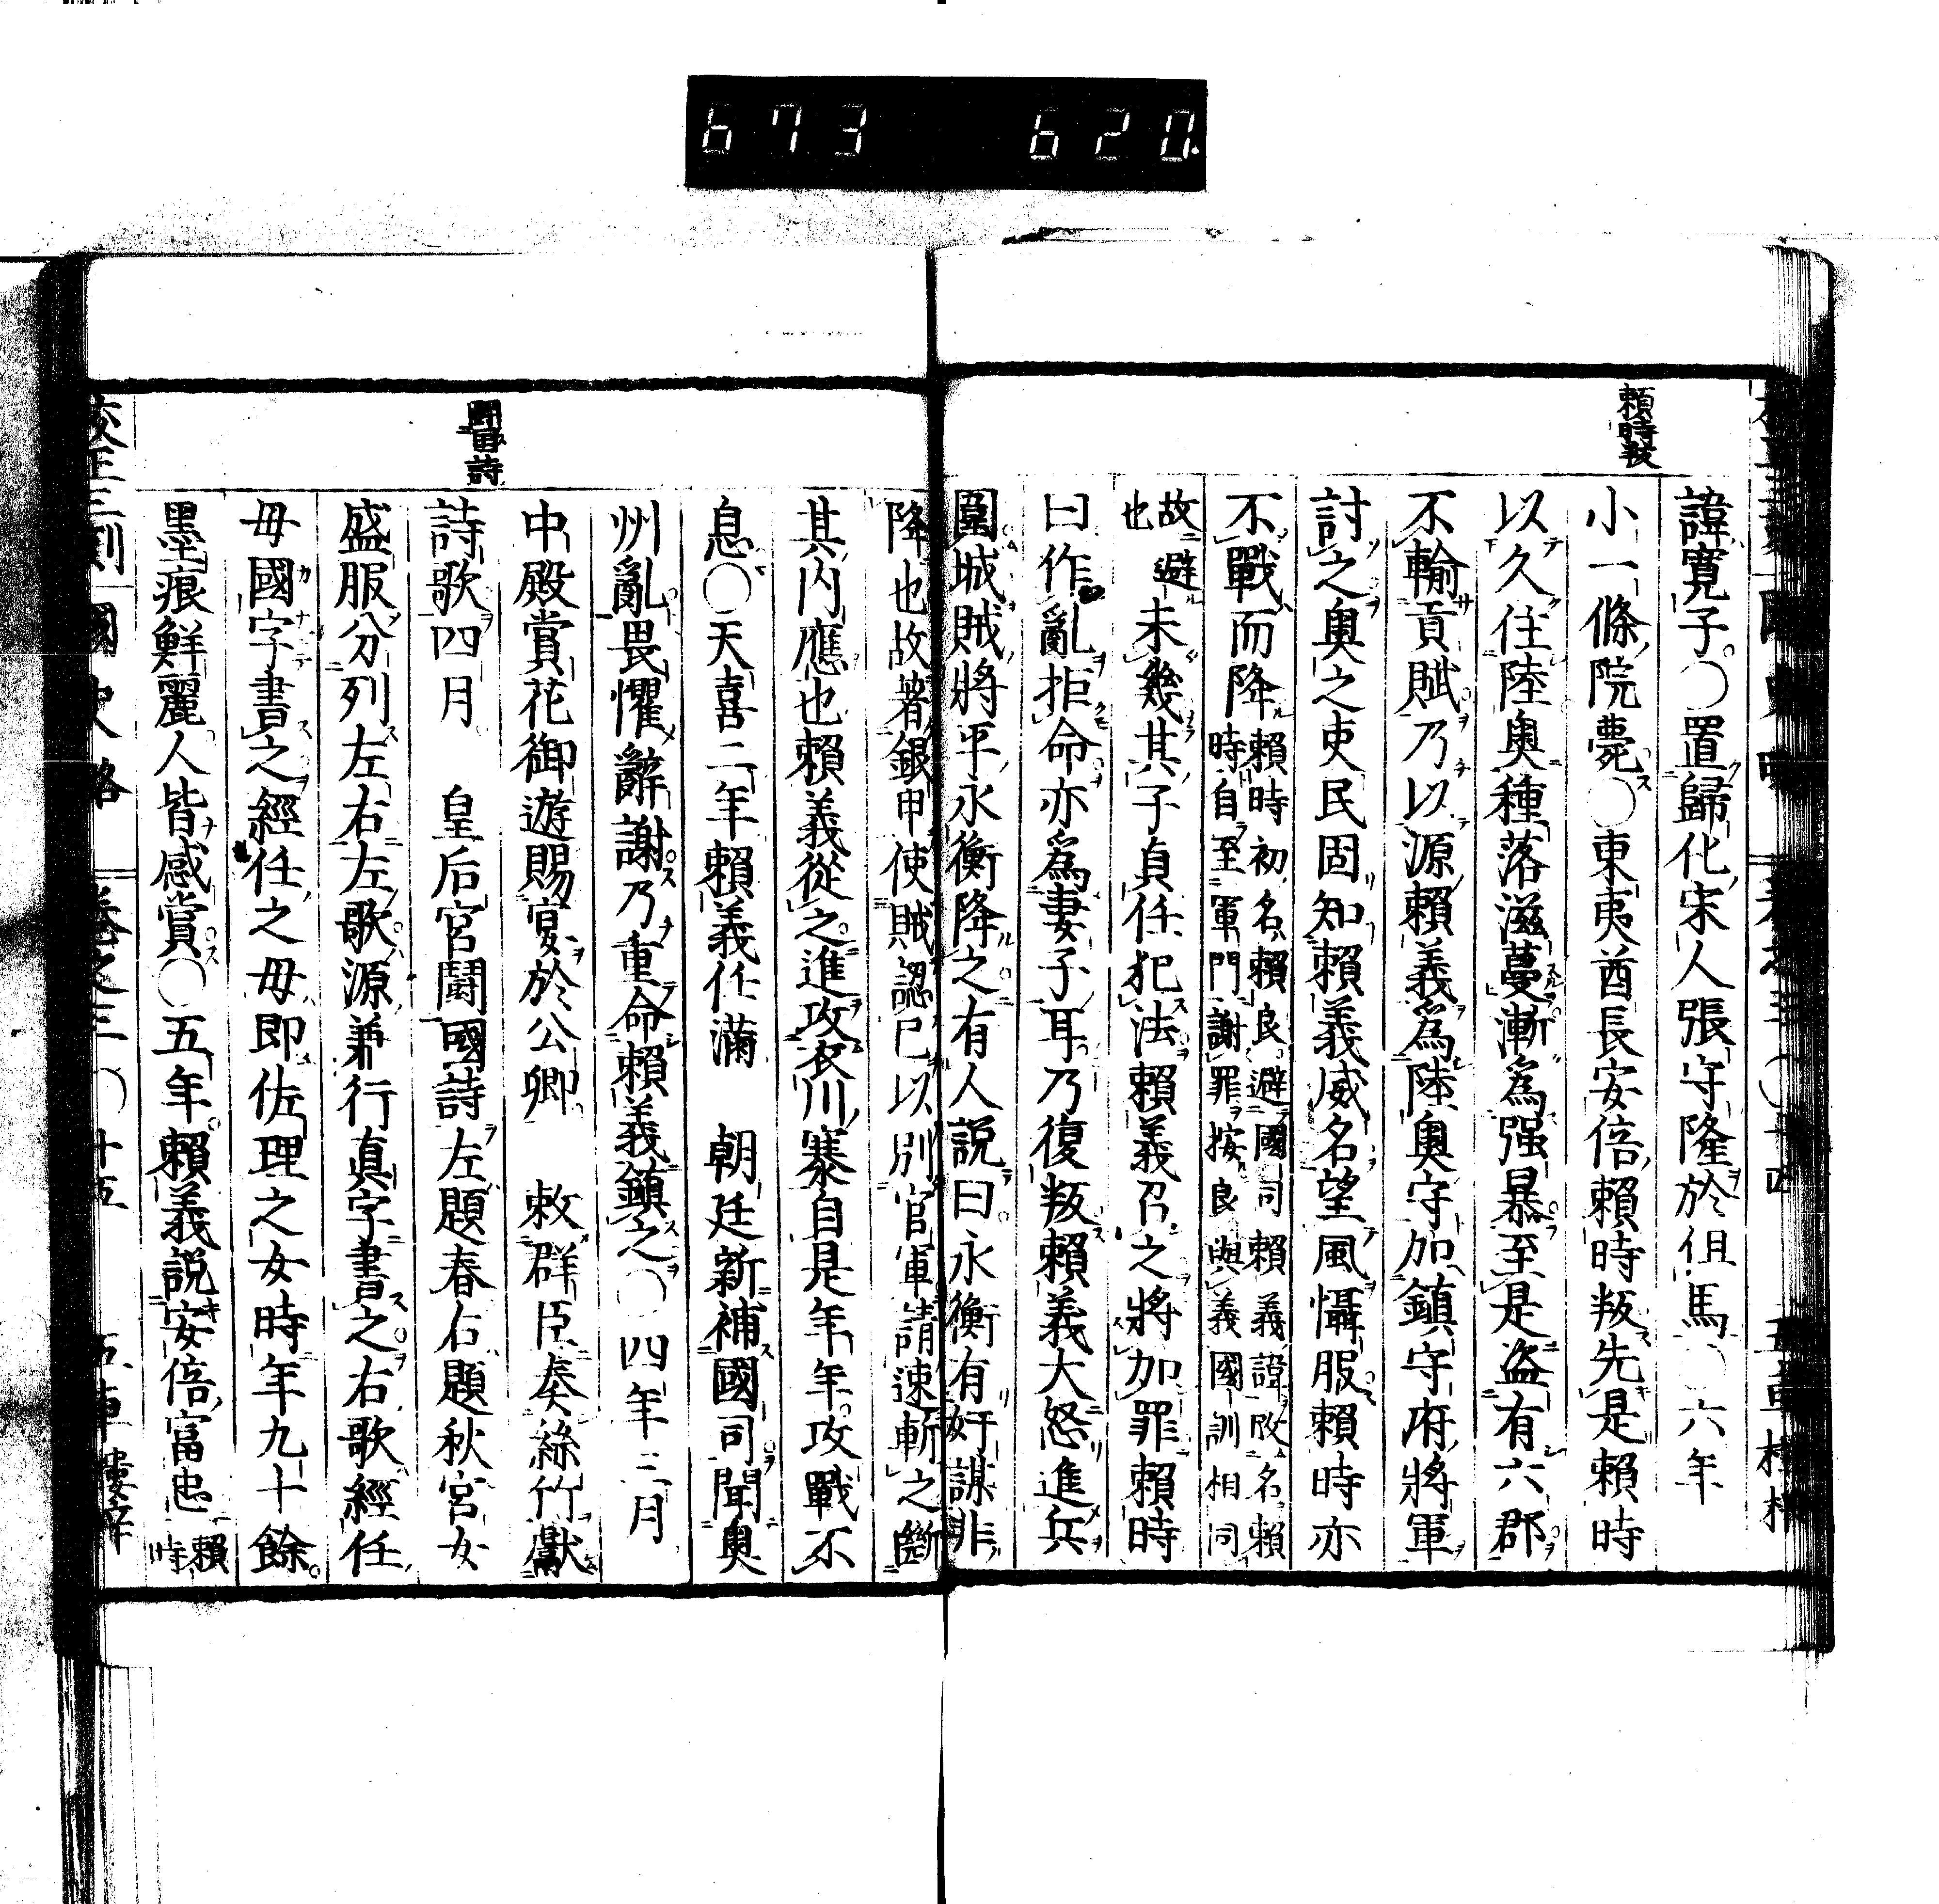 673 620
賴時叛
諱寬子○置歸化宋人張守隆於但馬○六年
小一條院薨○東夷酋長安倍賴時叛先是賴時
以久住陸奧種落滋蔓漸為强暴至是盗有六郡
不輸貢賦乃以源賴義為陸奧守加鎮守府將軍
討之奧之吏民固知賴義威名望風懾服賴時亦
不戰而降賴時初名賴良避國司賴義諱改名賴
時自至軍門謝罪按良與義國訓相同
故避
也
未幾其子貞任犯法賴義召之將加罪賴時
曰作亂拒命亦為妻子耳乃復叛賴義大怒進兵
圍城賊將平永衡降之有人說曰永衡有奸謀非
降也故著銀甲使賊認已以別官軍請速斬之斷
其内應也賴義從之進攻衣川寨自是年年攻戰不
息○天喜二年賴義任滿 朝廷新補國司聞奧
州亂畏懼辭謝乃重命賴義鎮之○四年三月
中殿賞花御遊賜宴於公卿 敕群臣奏絲竹獻
鬪國詩
詩歌四月 皇后宮鬪國詩左題春右題秋宮女
盛服分列左右左歌源兼行真字書之右歌經任
毋國字書之經任之毋即佐理之女時年九十餘
墨痕鮮麗人皆感賞○五年賴義說安倍富忠賴
時
校正三刻 國史略 卷之三 ○ 十五 五車樓梓